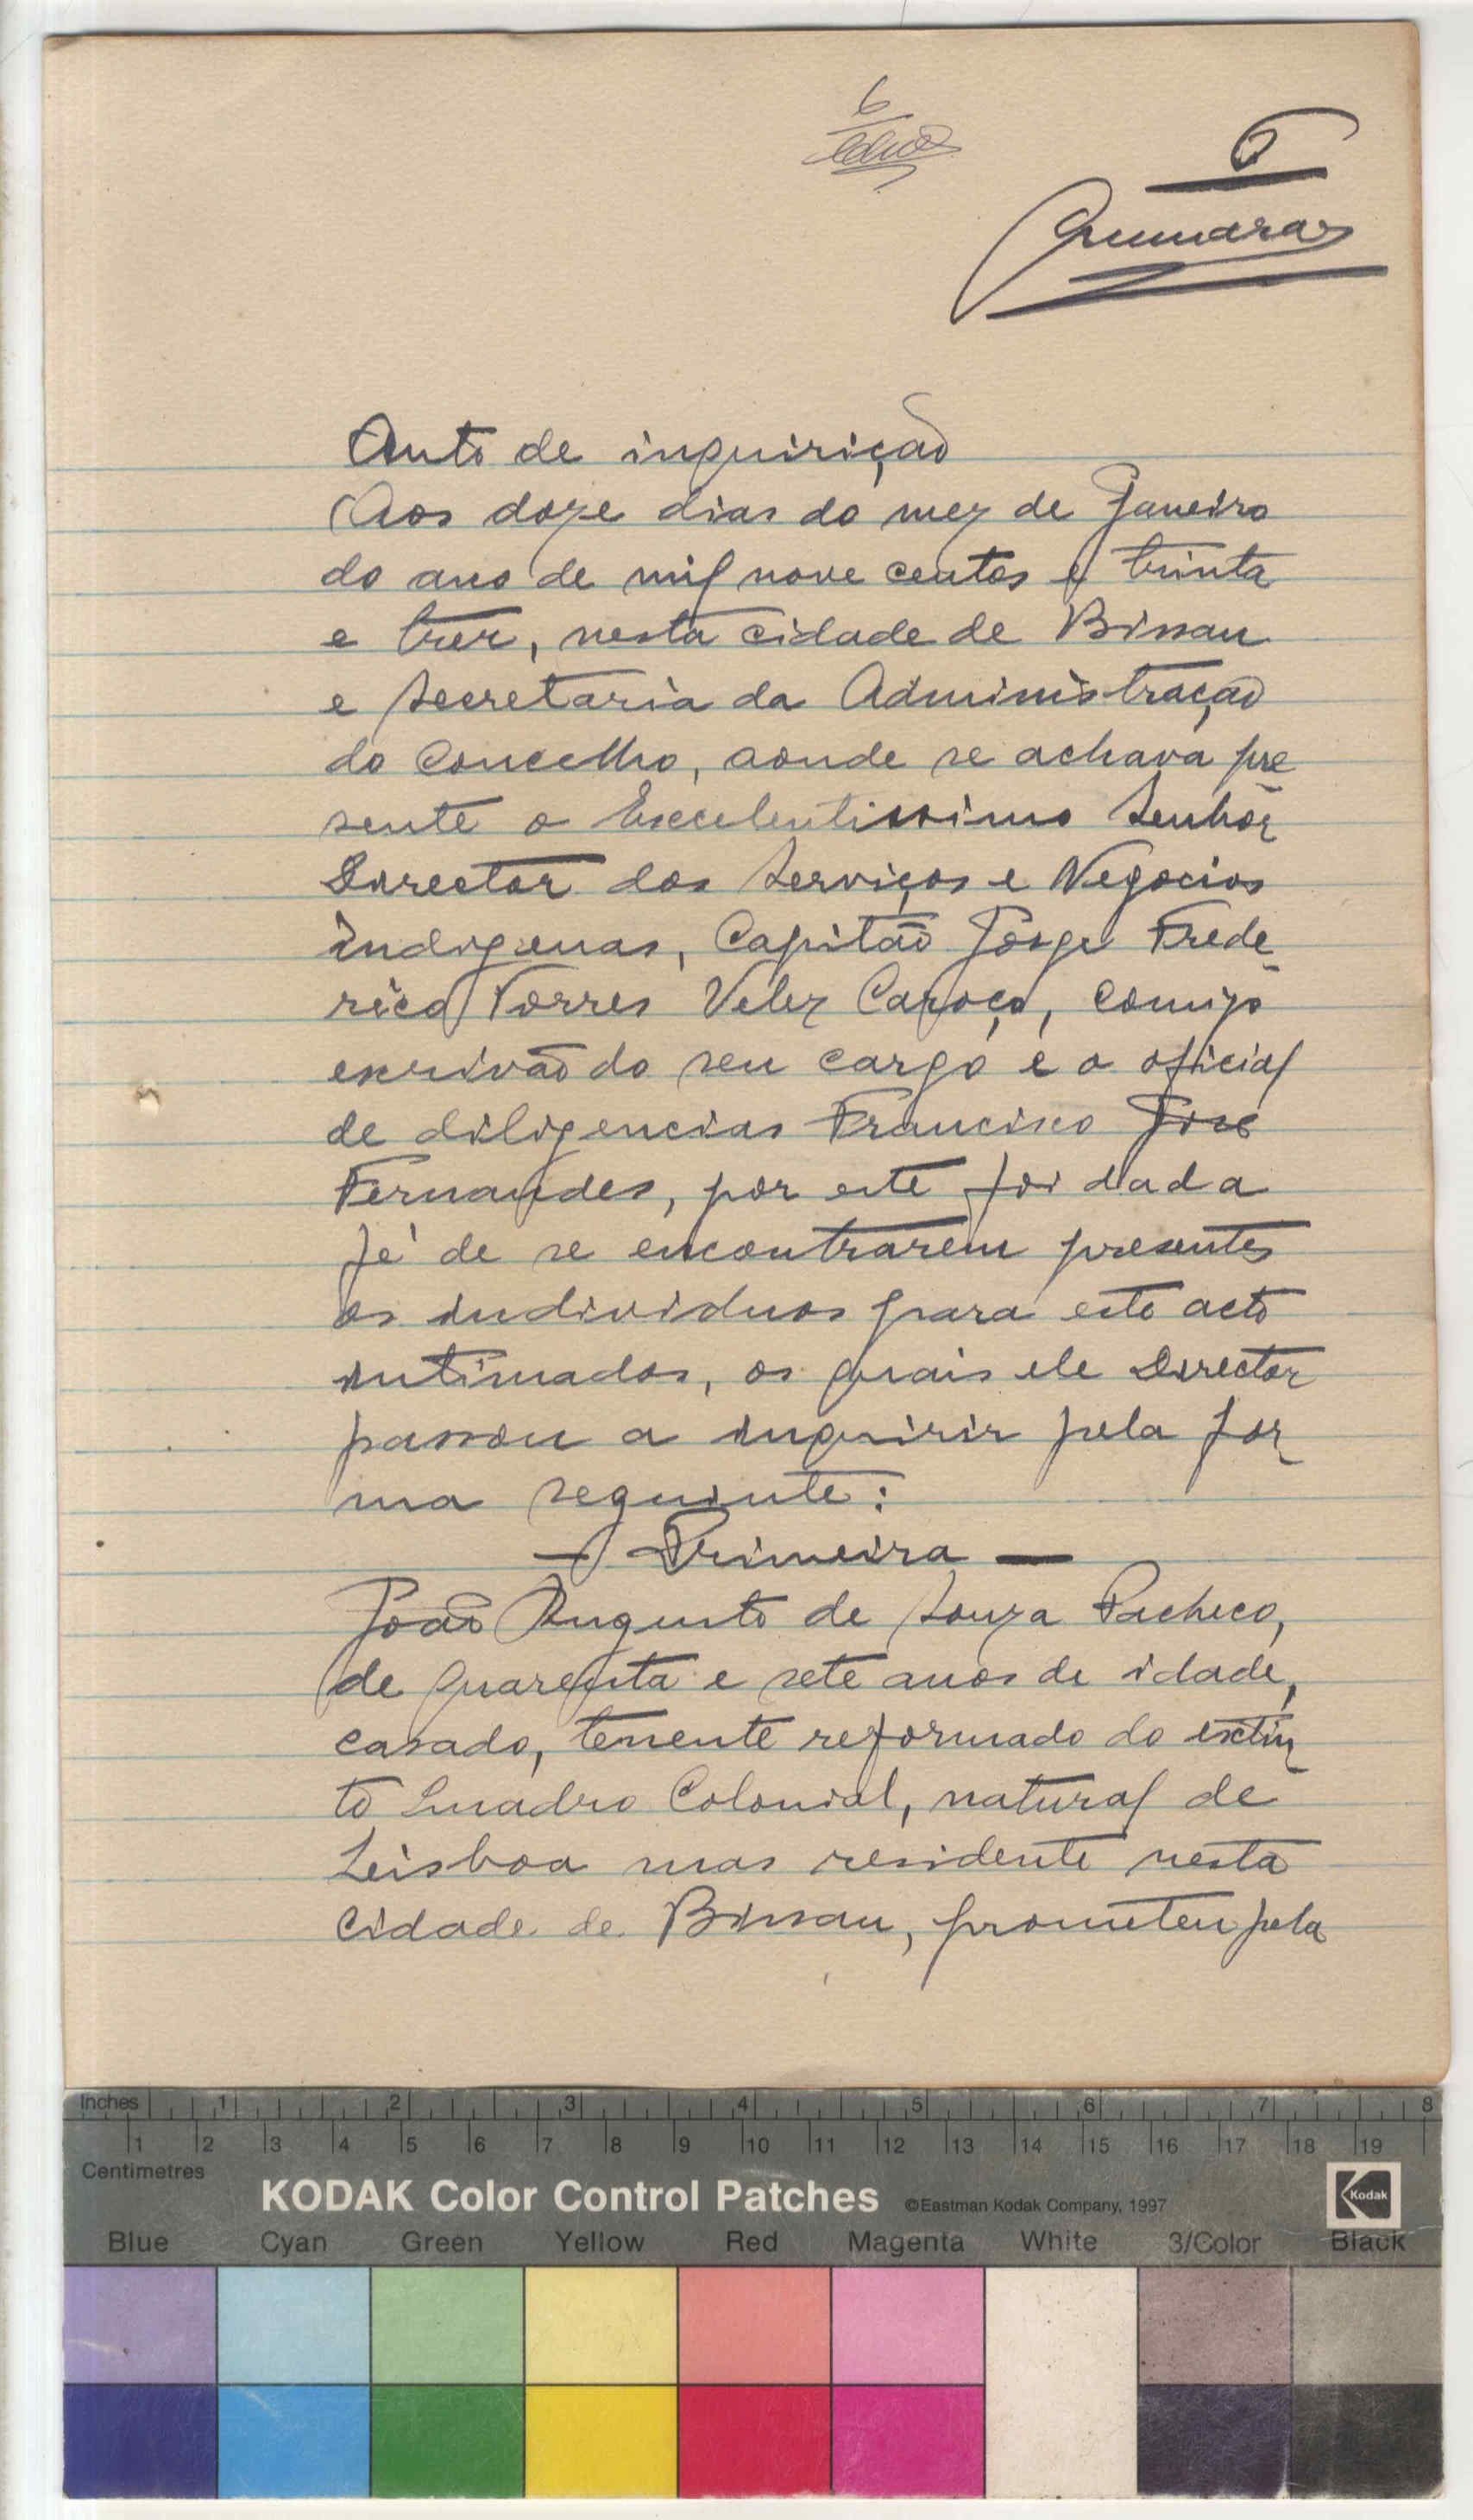 6
6
Guimarães
Auto de inquirição
Aos doze dias do mez de Janeiro
do ano de mil nove centos e trinta
e trez, nesta cidade de Bissau
e secretaria da Administração
do Concelho, aonde se achava pre
sente o Excelentissimo Senhor
Director dos Serviços e Negocios
indigenas, Capitão Jorge Frede
rico Torres Velez Caroço, comigo
escrivão do seu cargo e o oficial
de diligencias Francisco José
Fernandes, por este foi dada
fé de se encontrarem presentes
os individuos para este acto
intimados, os quais ele Director
passou a inquirir pela for
ma seguinte:
— Primeira —
João Augusto de Souza Pacheco,
de quarenta e sete anos de idade,
casado, tenente reformado do extin
to Quadro Colonial, natural de
Leisboa mas residente nesta
cidade de Bissau, prometeu pela
Inches 1 2 3 4 5 6 7 8
1 2 3 4 5 6 7 8 9 10 11 12 13 14 15 16 17 18 19
Centimetres
KODAK Color Control Patches ©Eastman Kodak Company, 1997 Kodak
Blue Cyan Green Yellow Red Magenta White 3/Color Black